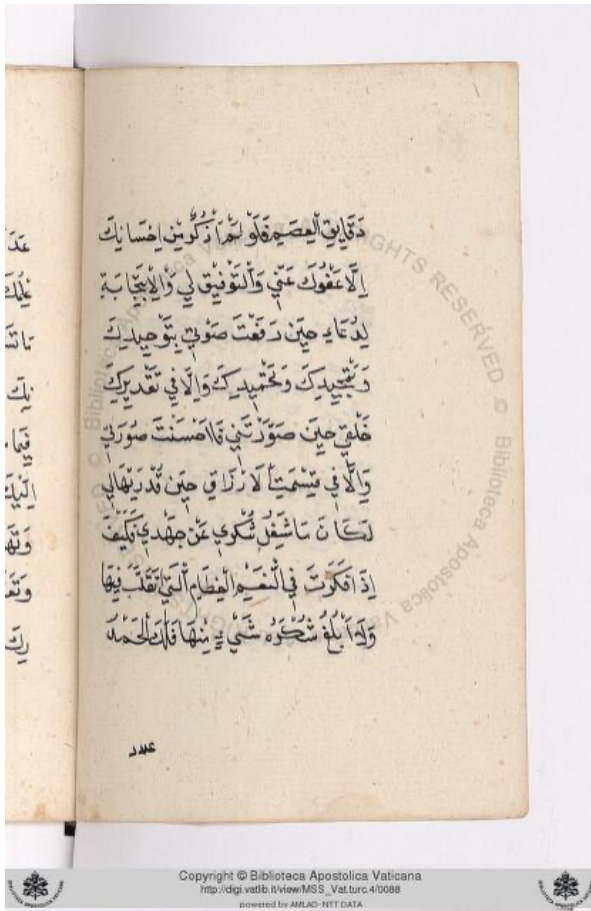 دَقَايِقِ الْعِصَمِ فَلَوْ لَمْ اَذْكُرْ مِنْ اِحْسَانِكَ
اِلَّا عَفْوَكَ عَنِّي وَالتَّوْفِيقَ لِي وَالْاِسْتِجَابَةِ
لِدُعَاءِ حِينَ رَفَعْتَ صَوْتِي بِتَوْحِيدِكَ
وَتَمْجِيدِكَ وَتَحْمِيدِكَ وَاِلَّا فِي تَقْدِيرِكَ
خَلْقِي حِينَ صَوَّرْتَنِي فَاَحْسَنْتَ صُورَتِي
وَاِلَّا فِي قِسْمَتِ الْاَرْزَاقِ حِينَ قَدَّرْتَهَا لِي
لَكَانَ مَا شَغَلَ شُكْرِي عَنْ جَهْدِي فَكَيْفَ
اِذَا فَكَّرْتُ فِي النِّعَمِ الْعِظَامِ الَّتِي تَقَلَّبُ فِيهَا
وَلَا اَبْلُغُ شُكْرَهُ شَيْءٍ مِنْهَا فَلَكَ الْحَمْدُ
عدد
RIGHTS RESERVED © Biblioteca Apostolica Vaticana
Copyright © Biblioteca Apostolica Vaticana
http://digi.vatlib.it/view/MSS_Vat.turc.4/0088
powered by AMLAD-NTT DATA